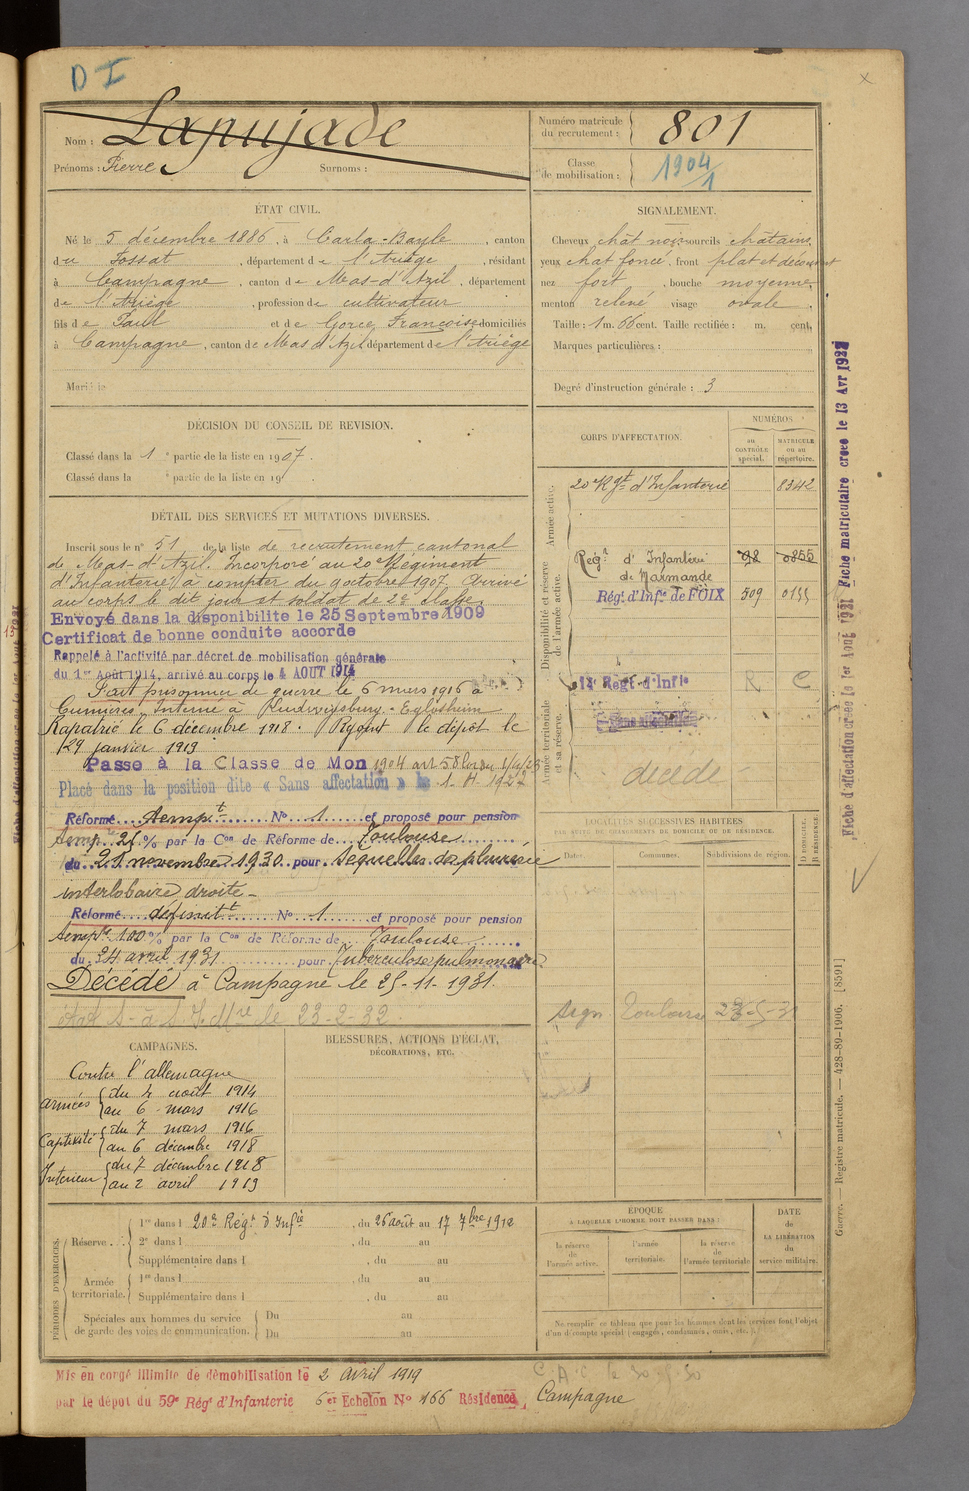 D I
Nom : Lapujade
Prénoms : Pierre Surnoms :
Numéro matricule du recrutement : 801
Classe de mobilisation : 1904/1
ÉTAT CIVIL.
Né le 5 décembre 1886, à Carla-Bayle, canton
du Fossat, département de l'Ariège, résidant
à Campagne, canton de Mas-d'Azil, département
de l'Ariège, profession de cultivateur
fils de Paul et de Gorce, Françoise domiciliés
à Campagne, canton de Mas d'Azil département de l'Ariège
Marié le
SIGNALEMENT.
Cheveux chât noirs sourcils châtains
yeux chat foncé, front plat et découvert
nez fort, bouche moyenne
menton relevé visage ovale
Taille : 1 m. 66 cent. Taille rectifiée : m. cent.
Marques particulières :
Degré d'instruction générale : 3
DÉCISION DU CONSEIL DE REVISION.
Classé dans la 1e partie de la liste en 1907.
Classé dans la e partie de la liste en 19
DÉTAIL DES SERVICES ET MUTATIONS DIVERSES.
Inscrit sous le n° 51 de la liste de recrutement cantonal
de Mas-d'Azil. Incorporé au 20e Régiment
d'Infanterie à compter du 9 octobre 1907. Arrivé
au corps le dit jour et soldat de 2e classe.
Envoyé dans la disponibilité le 25 Septembre 1909
Certificat de bonne conduite accordé
Rappelé à l'activité par décret de mobilisation générale
du 1er Août 1914, arrivé au corps le 4 AOUT 1914
Fait prisonnier de guerre le 6 mars 1916 à
Cumières, Interné à Ludwigsburg - Eglosheim
Rapatrié le 6 décembre 1918. Rejoint le dépôt le
29 janvier 1919
Passé à la Classe de Mon 1904 art 58
Placé dans la position dite « Sans affectation » le 1.4.1927
Réformé tempt N° 1 et proposé pour pension
temp. 25 % par la Con de Réforme de Toulouse
du 21 novembre 1930 pour Séquelles de pleurésie
interlobaire droite -
Réformé définitt N° 1 et proposé pour pension
temp. 100 % par la Con de Réforme de Toulouse
du 24 avril 1931 pour Tuberculose pulmonaire
Décédé à Campagne le 25-11-1931.
le 23-2-32.
CORPS D'AFFECTATION.
NUMÉROS
au CONTRÔLE spécial.
MATRICULE ou au répertoire.
Armée active.
20e Rgt d'Infanterie 8342
Disponibilité et réserve de l'armée active.
Régt d'Infanterie de Marmande 92 0255
Régt d'Infie de FOIX 509
Armée territoriale et sa réserve.
Regt d'Infie R C
Sans affectation
décédé
LOCALITÉS SUCCESSIVES HABITÉES
PAR SUITE DE CHANGEMENTS DE DOMICILE OU DE RÉSIDENCE.
Dates. Communes. Subdivisions de région. D DOMICILE. R RÉSIDENCE.
Toulouse
CAMPAGNES.
Contre l'allemagne
armées du 4 août 1914
au 6 mars 1916
Captivité du 7 mars 1916
au 6 décembre 1918
Intérieur du 7 décembre 1918
au 2 avril 1919
BLESSURES, ACTIONS D'ÉCLAT,
DÉCORATIONS, ETC.
PÉRIODES D'EXERCICES.
Réserve
1re dans l 20e Régt d'Infie, du 26 août au 17 7bre 1912
2e dans l , du au
Supplémentaire dans l , du au
Armée territoriale.
1re dans l , du au
Supplémentaire dans l , du au
Spéciales aux hommes du service de garde des voies de communication.
Du au
Du au
ÉPOQUE
A LAQUELLE L'HOMME DOIT PASSER DANS :
la réserve de l'armée active.
l'armée territoriale.
la réserve de l'armée territoriale
DATE de LA LIBÉRATION du service militaire.
Ne remplir ce tableau que pour les hommes dont les services font l'objet
d'un décompte spécial (engagés, condamnés, omis, etc.)
Mis en congé illimité de démobilisation le 2 avril 1919
par le dépôt du 59e Régt d'Infanterie 6 er Echelon N° 166 Résidence, Campagne
Fiche d'affectation créée le 1er Août 1931 Fiche matriculaire créée le 13 Avr 192
Guerre. — Registre matricule. — 428-89-1906. [8591]